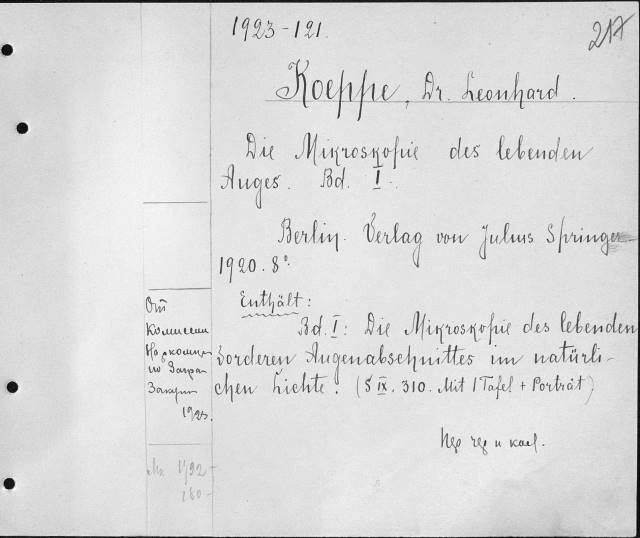 1923-121.
217
Koeppe, Dr. Leonhard.
Die Mikroskopie des lebenden
Auges. Bd. I.
Berlin. Verlag von Julius Springer
1920. 8°.
Enthält:
Bd. I: Die Mikroskopie des lebenden
vorderen Augenabschnittes im natürli-
chen Lichte. (S IX. 310. Mit 1 Tafel + Porträt)
От
Комиссии
1923.
1792-
280-